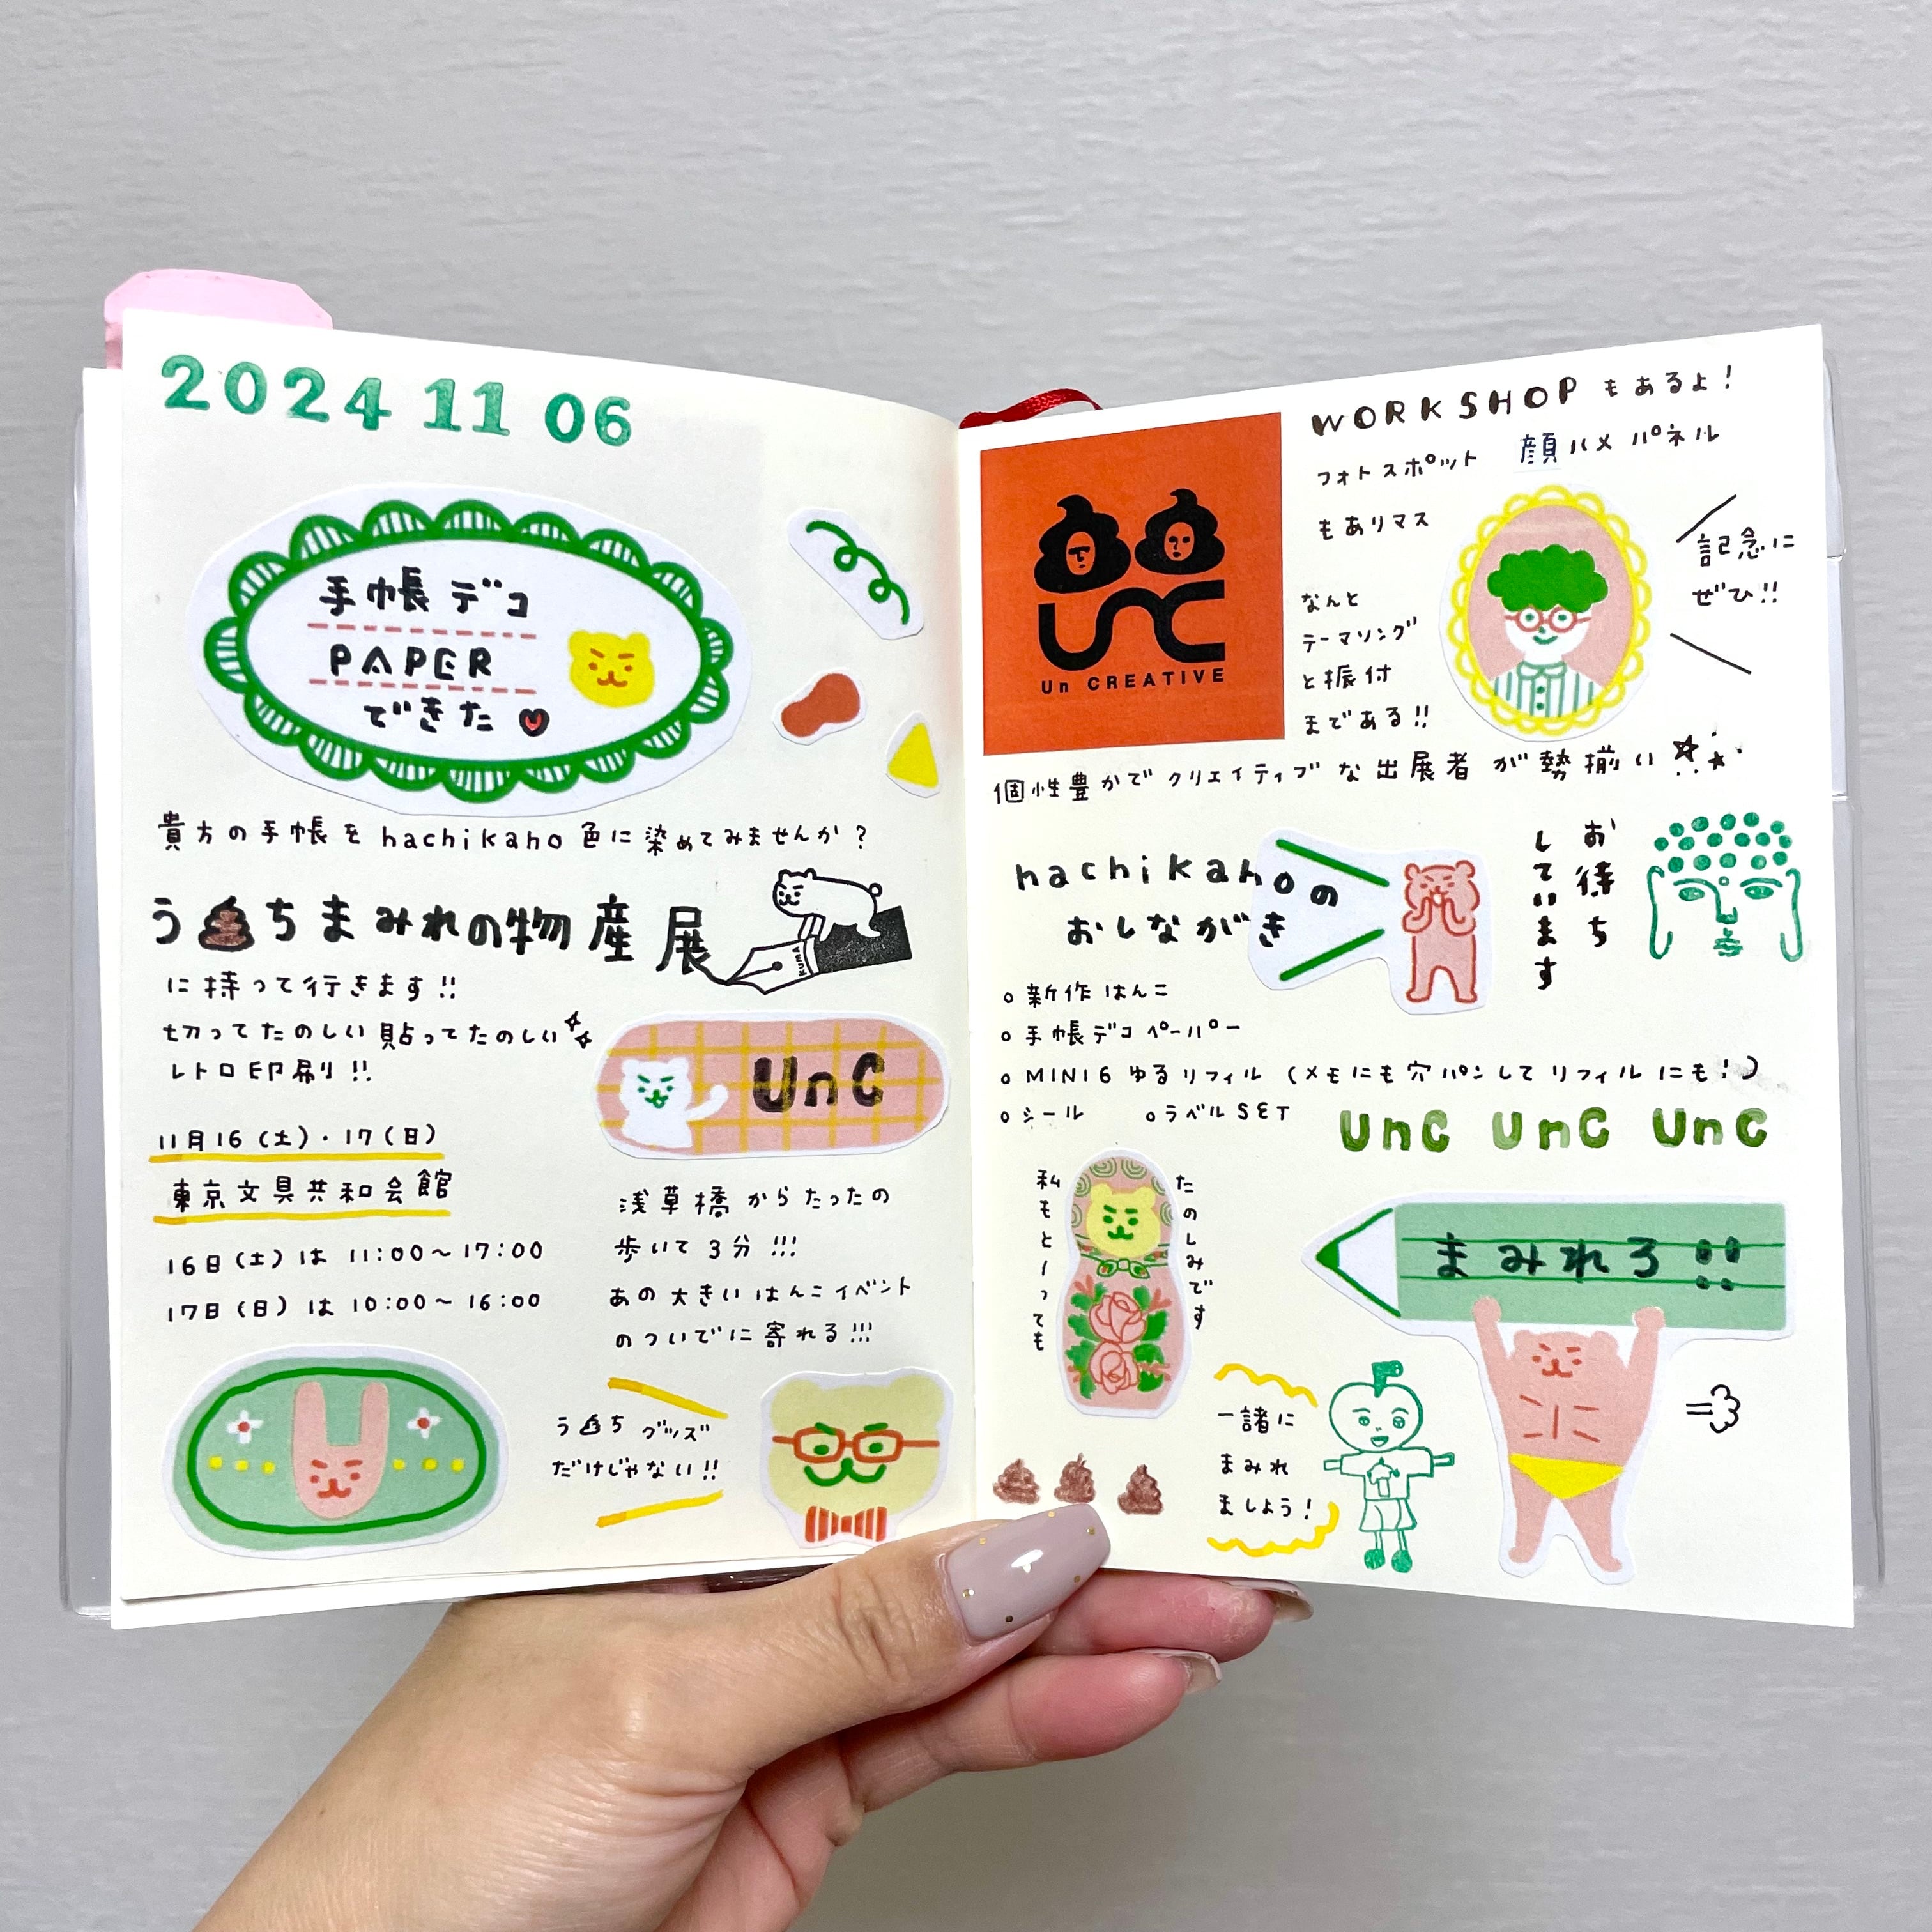 2024 11 06
手帳デコ
PAPER
できた
貴方の手帳をhachikaho色に染めてみませんか?
う💩ちまみれの物産展
KUMA
に持って行きます!!
切ってたのしい貼ってたのしい
レトロ印刷!!
UnC
11月16(土)・17(日)
東京文具共和会館
16日(土)は 11:00~17:00
17日(日)は 10:00~16:00
浅草橋からたったの
歩いて3分!!!
あの大きいはんこイベント
のついでに寄れる!!!
う💩ちグッズ
だけじゃない!!
UnC
Un CREATIVE
WORKSHOPもあるよ!
フォトスポット 顔ハメパネル
もありマス
記念に
ぜひ!!
なんと
テーマソング
と振付
まである!!
個性豊かでクリエイティブな出展者が勢揃い
hachikahoの
おしながき
お待ち
しています
○新作はんこ
○手帳デコペーパー
○MINI6ゆるリフィル(メモにも穴パンしてリフィルにも!)
○シール ○ラベルSET
UnC UnC UnC
私もとーっても
たのしみです
まみれろ!!
一諸に
まみれ
ましょう!